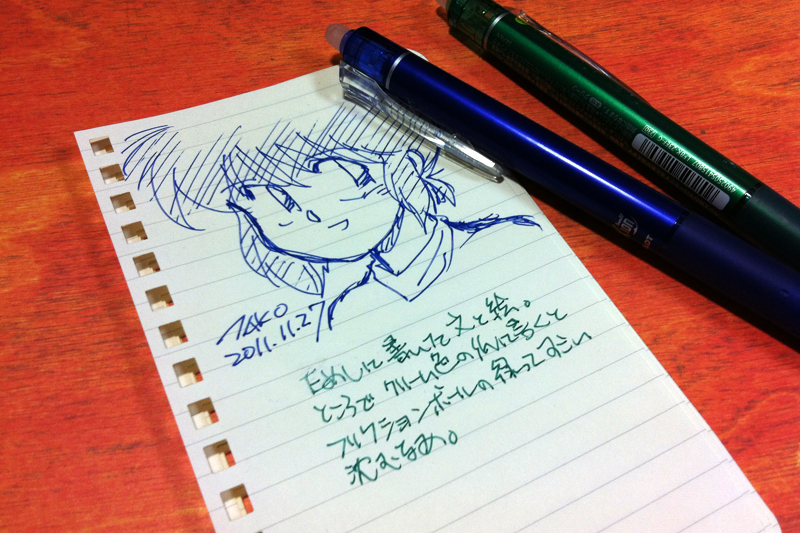 TAKO
2011.11.27
ためしに書いた文と絵。
ところで クリーム色の紙に書くと
フリクションボールの緑ってすごい
沈むなぁ。